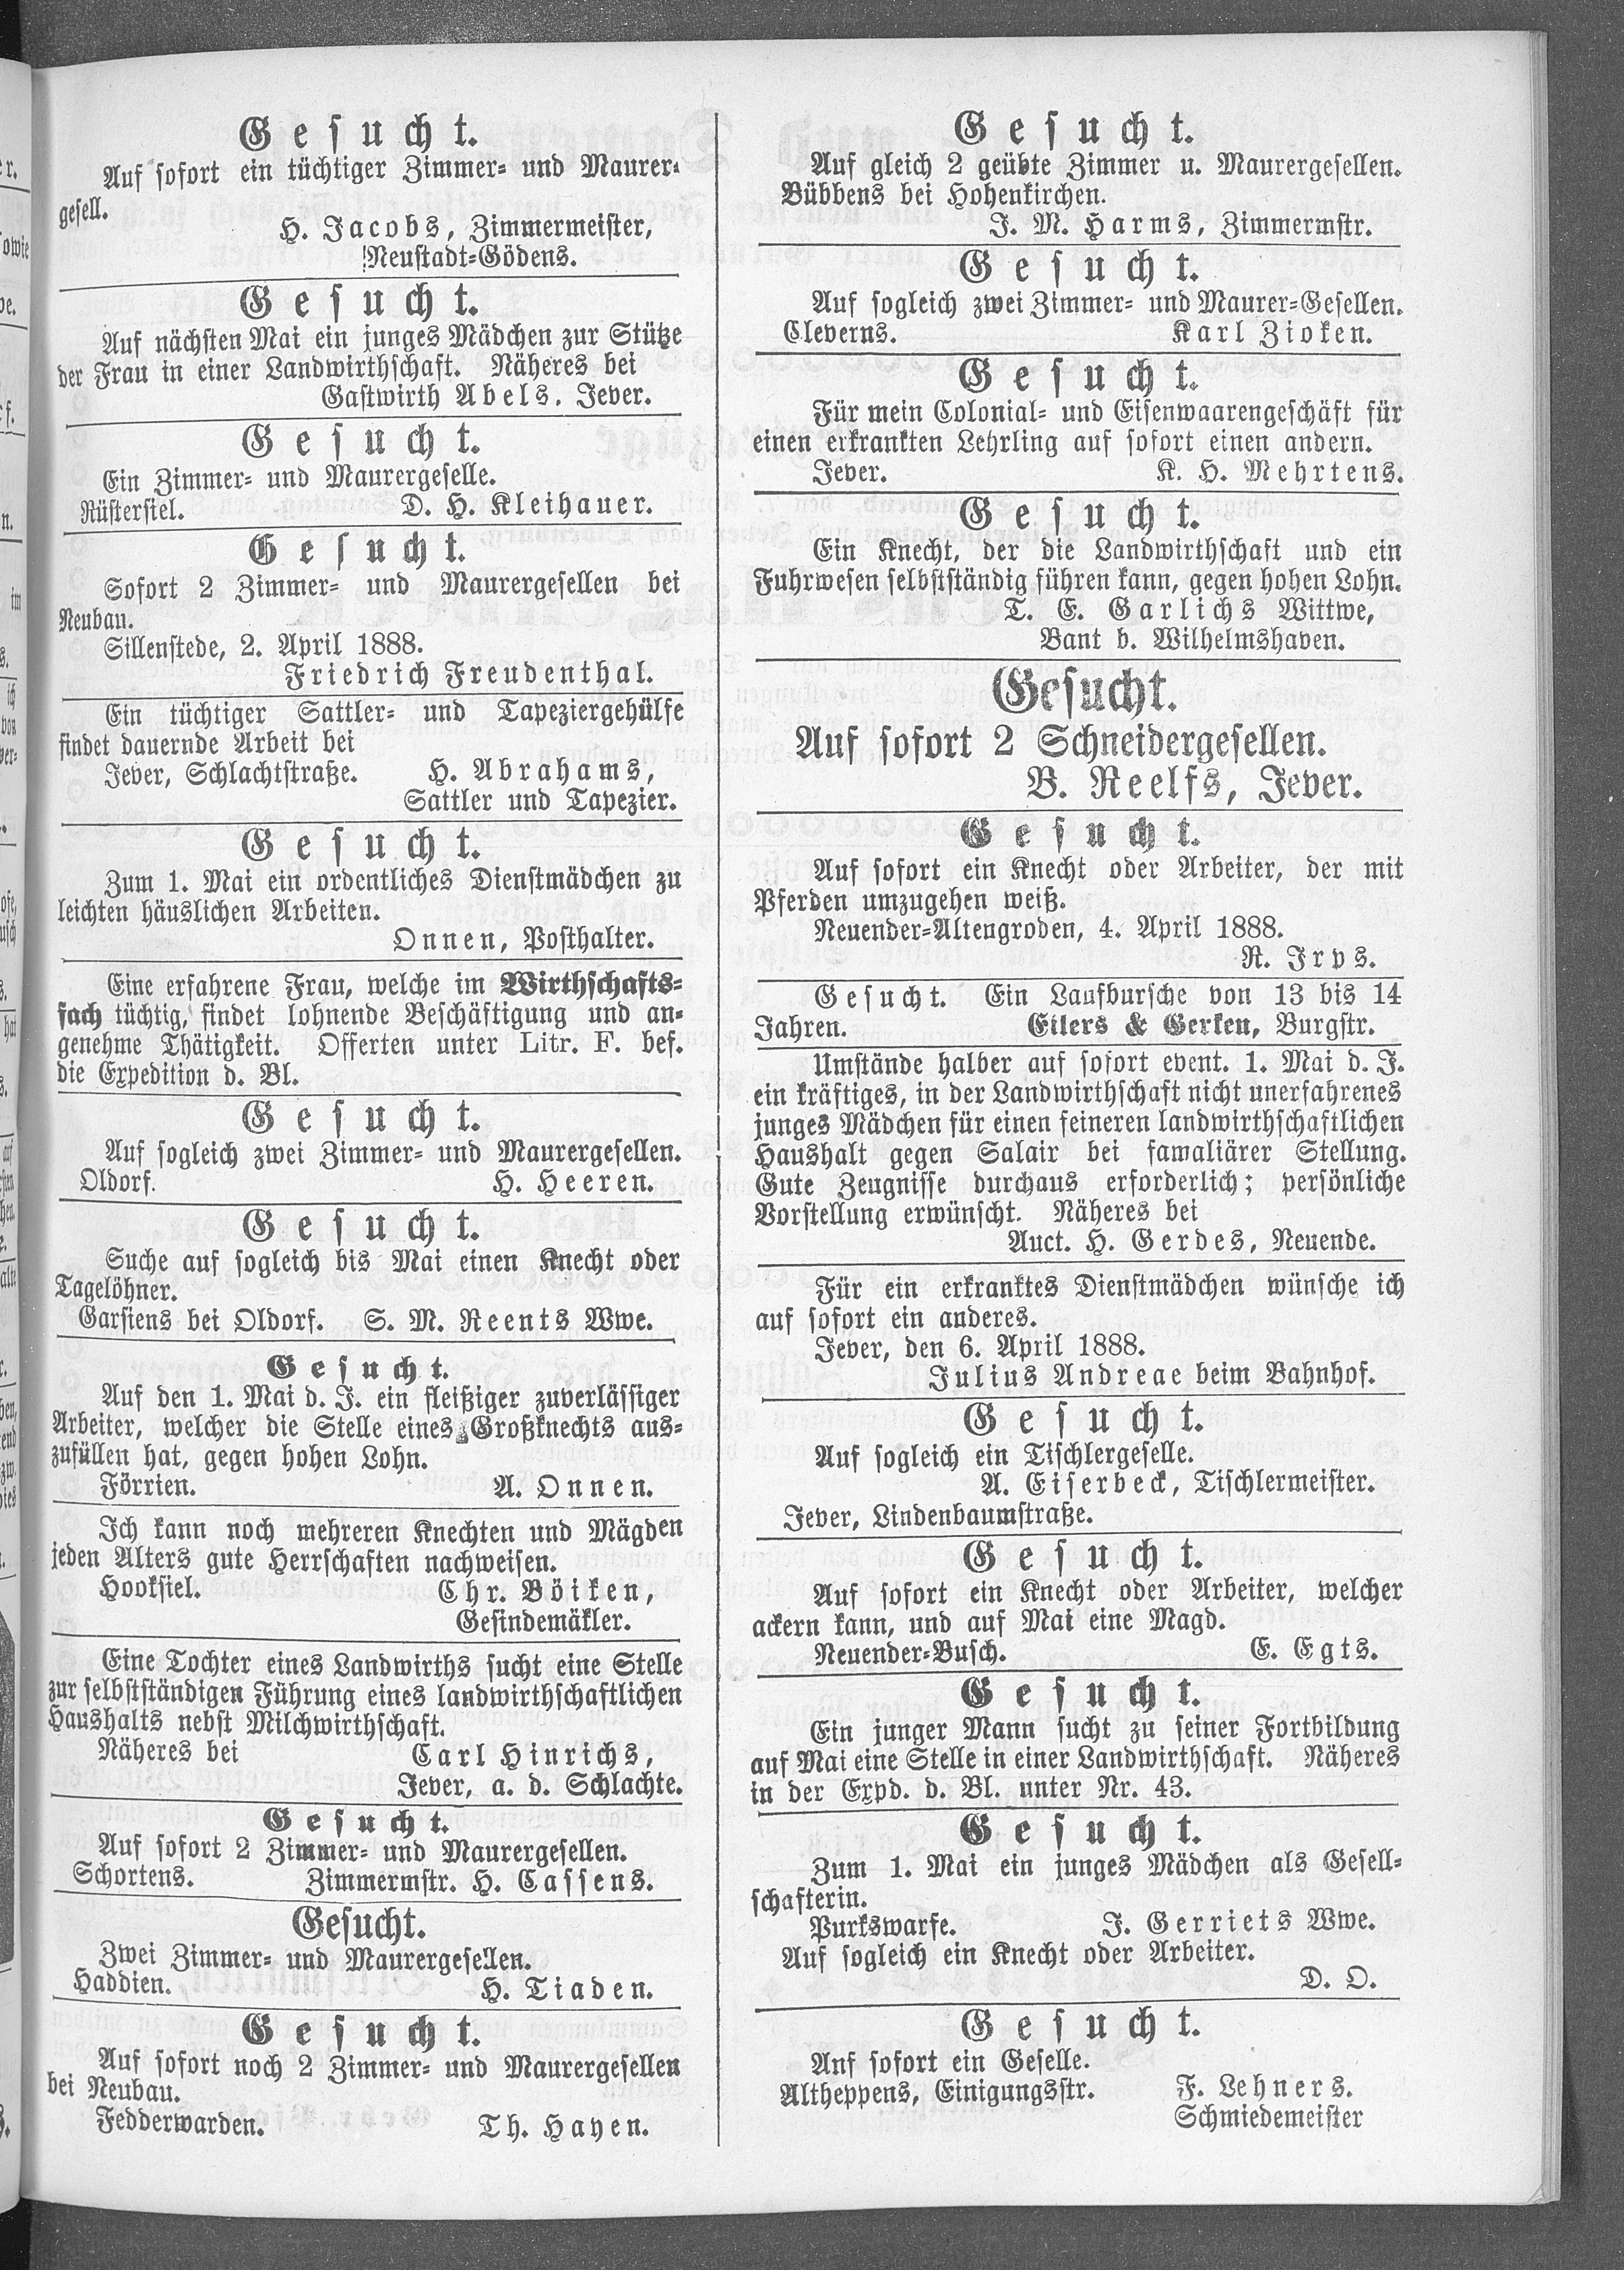 Gesucht.
Auf sofort ein tüchtiger Zimmer- und Maurer-
gesell.
H. Jacobs, Zimmermeister,
Neustadt-Gödens.
Gesucht.
Auf nächsten Mai ein junges Mädchen zur Stütze
der Frau in einer Landwirthschaft. Näheres bei
Gastwirth Abels, Jever.
Gesucht.
Ein Zimmer- und Maurergeselle.
Rüstersiel. D. H. Kleihauer.
Gesucht.
Sofort 2 Zimmer- und Maurergesellen bei
Neubau.
Sillenstede, 2. April 1888.
Friedrich Freudenthal.
Ein tüchtiger Sattler- und Tapeziergehülfe
findet dauernde Arbeit bei
Jever, Schlachtstraße. H. Abrahams,
Sattler und Tapezier.
Gesucht.
Zum 1. Mai ein ordentliches Dienstmädchen zu
leichten häuslichen Arbeiten.
Onnen, Posthalter.
Eine erfahrene Frau, welche im Wirthschafts-
fach tüchtig, findet lohnende Beschäftigung und an-
genehme Thätigkeit. Offerten unter Litr. F. bef.
die Expedition d. Bl.
Gesucht.
Auf sogleich zwei Zimmer- und Maurergesellen.
Oldorf. H. Heeren.
Gesucht.
Suche auf sogleich bis Mai einen Knecht oder
Tagelöhner.
Garsiens bei Oldorf. S. M. Reents Wwe.
Gesucht.
Auf den 1. Mai d. J. ein fleißiger zuverlässiger
Arbeiter, welcher die Stelle eines Großknechts aus-
zufüllen hat, gegen hohen Lohn.
Förrien. A. Onnen.
Ich kann noch mehreren Knechten und Mägden
jeden Alters gute Herrschaften nachweisen.
Hooksiel. Chr. Böiken,
Gesindemäkler.
Eine Tochter eines Landwirths sucht eine Stelle
zur selbstständigen Führung eines landwirthschaftlichen
Haushalts nebst Milchwirthschaft.
Näheres bei Carl Hinrichs,
Jever, a. d. Schlachte.
Gesucht.
Auf sofort 2 Zimmer- und Maurergesellen.
Schortens. Zimmermstr. H. Cassens.
Gesucht.
Zwei Zimmer- und Maurergesellen.
Haddien. H. Tiaden.
Gesucht.
Auf sofort noch 2 Zimmer- und Maurergesellen
bei Neubau.
Fedderwarden. Th. Hayen.
Gesucht.
Auf gleich 2 geübte Zimmer u. Maurergesellen.
Bübbens bei Hohenkirchen.
J. M. Harms, Zimmermstr.
Gesucht.
Auf sogleich zwei Zimmer- und Maurer-Gesellen.
Cleverns. Karl Zioken.
Gesucht.
Für mein Colonial- und Eisenwaarengeschäft für
einen erkrankten Lehrling auf sofort einen andern.
Jever. K. H. Mehrtens.
Gesucht.
Ein Knecht, der die Landwirthschaft und ein
Fuhrwesen selbstständig führen kann, gegen hohen Lohn.
T. E. Garlichs Wittwe,
Bant b. Wilhelmshaven.
Gesucht.
Auf sofort 2 Schneidergesellen.
B. Reelfs, Jever.
Gesucht.
Auf sofort ein Knecht oder Arbeiter, der mit
Pferden umzugehen weiß.
Neuender-Altengroden, 4. April 1888.
R. Irps.
Gesucht. Ein Laufbursche von 13 bis 14
Jahren. Eilers & Gerken, Burgstr.
Umstände halber auf sofort event. 1. Mai d. J.
ein kräftiges, in der Landwirthschaft nicht unerfahrenes
junges Mädchen für einen feineren landwirthschaftlichen
Haushalt gegen Salair bei famaliärer Stellung.
Gute Zeugnisse durchaus erforderlich; persönliche
Vorstellung erwünscht. Näheres bei
Auct. H. Gerdes, Neuende.
Für ein erkranktes Dienstmädchen wünsche ich
auf sofort ein anderes.
Jever, den 6. April 1888.
Julius Andreae beim Bahnhof.
Gesucht.
Auf sogleich ein Tischlergeselle.
A. Eiserbeck, Tischlermeister.
Jever, Lindenbaumstraße.
Gesucht.
Auf sofort ein Knecht oder Arbeiter, welcher
ackern kann, und auf Mai eine Magd.
Neuender-Busch. E. Egts.
Gesucht.
Ein junger Mann sucht zu seiner Fortbildung
auf Mai eine Stelle in einer Landwirthschaft. Näheres
in der Expd. d. Bl. unter Nr. 43.
Gesucht.
Zum 1. Mai ein junges Mädchen als Gesell-
schafterin.
Purkswarfe. J. Gerriets Wwe.
Auf sogleich ein Knecht oder Arbeiter.
D. O.
Gesucht.
Anf sofort ein Geselle.
Altheppens, Einigungsstr. F. Lehners.
Schmiedemeister